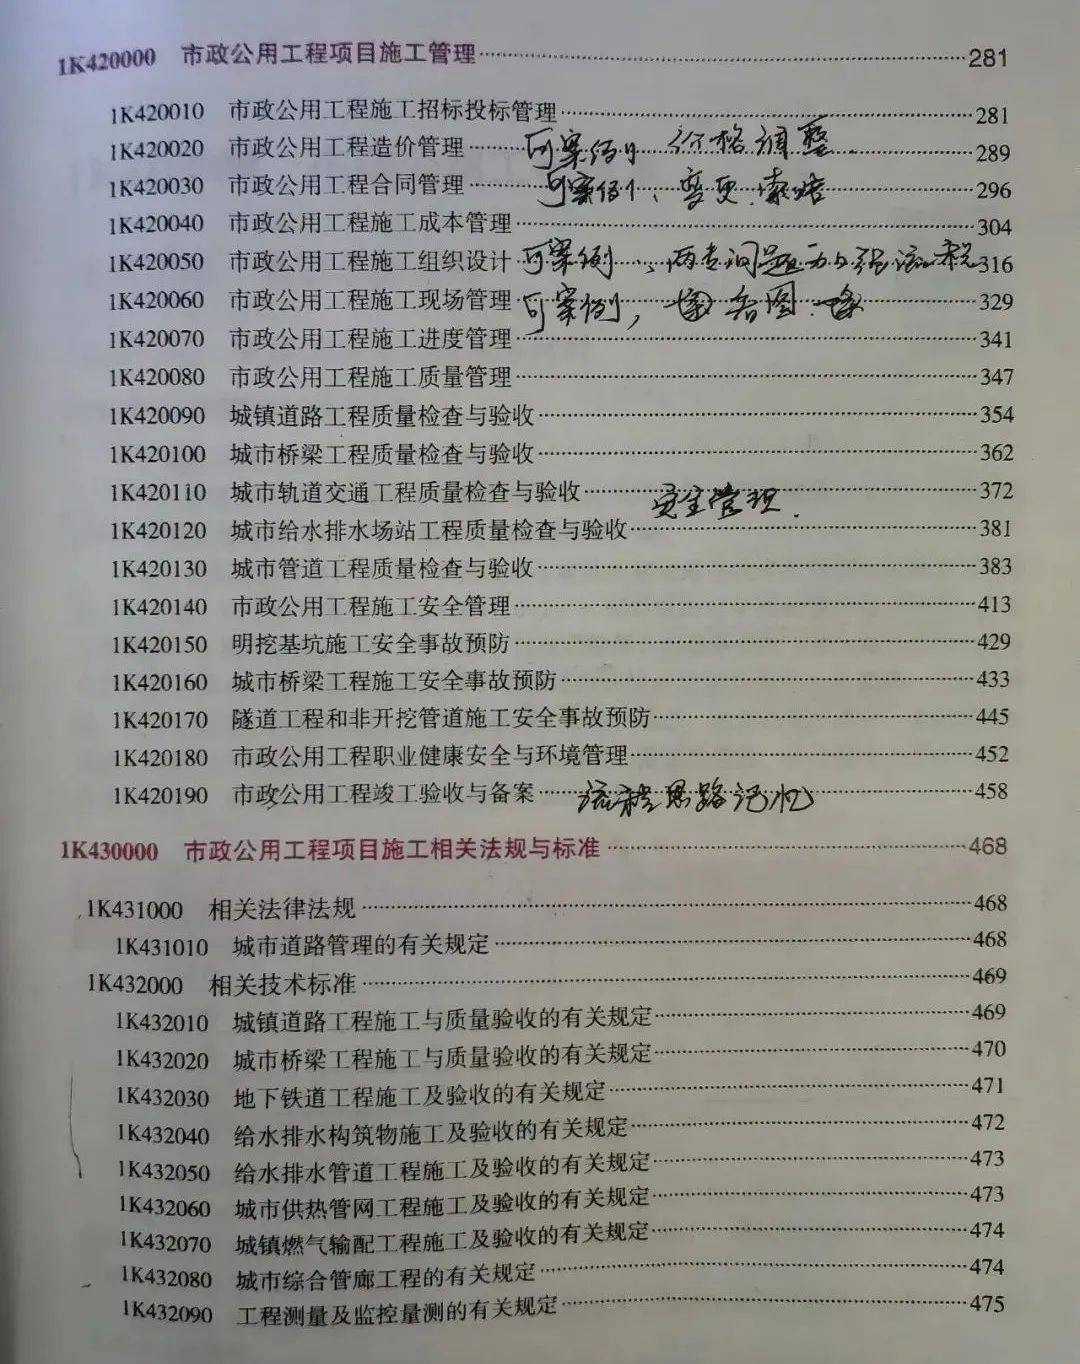 1K420000 市政公用工程项目施工管理 281
1K420010 市政公用工程施工招标投标管理 281
1K420020 市政公用工程造价管理 可案例 价格调整 289
1K420030 市政公用工程合同管理 可案例、变更、索赔 296
1K420040 市政公用工程施工成本管理 304
1K420050 市政公用工程施工组织设计 可案例、两专问题 流程 316
1K420060 市政公用工程施工现场管理 可案例, 看图 329
1K420070 市政公用工程施工进度管理 341
1K420080 市政公用工程施工质量管理 347
1K420090 城镇道路工程质量检查与验收 354
1K420100 城市桥梁工程质量检查与验收 362
1K420110 城市轨道交通工程质量检查与验收 372
安全管理.
1K420120 城市给水排水场站工程质量检查与验收 381
1K420130 城市管道工程质量检查与验收 383
1K420140 市政公用工程施工安全管理 413
1K420150 明挖基坑施工安全事故预防 429
1K420160 城市桥梁工程施工安全事故预防 433
1K420170 隧道工程和非开挖管道施工安全事故预防 445
1K420180 市政公用工程职业健康安全与环境管理 452
1K420190 市政公用工程竣工验收与备案 流程思路记忆 458
1K430000 市政公用工程项目施工相关法规与标准 468
1K431000 相关法律法规 468
1K431010 城市道路管理的有关规定 468
1K432000 相关技术标准 469
1K432010 城镇道路工程施工与质量验收的有关规定 469
1K432020 城市桥梁工程施工与质量验收的有关规定 470
1K432030 地下铁道工程施工及验收的有关规定 471
1K432040 给水排水构筑物施工及验收的有关规定 472
1K432050 给水排水管道工程施工及验收的有关规定 473
1K432060 城市供热管网工程施工及验收的有关规定 473
1K432070 城镇燃气输配工程施工及验收的有关规定 474
1K432080 城市综合管廊工程的有关规定 474
1K432090 工程测量及监控量测的有关规定 475